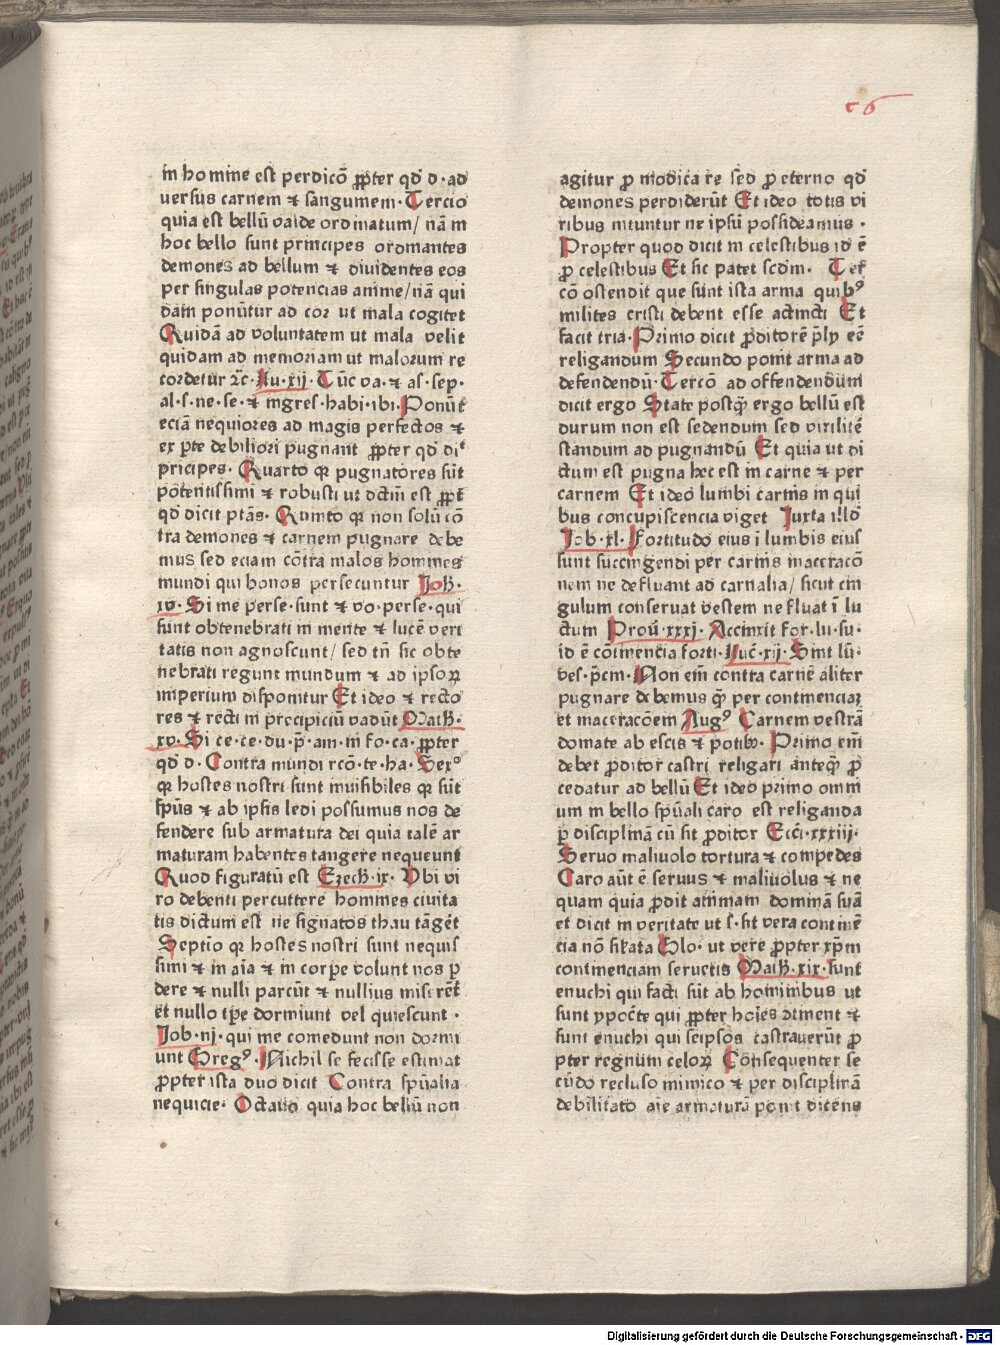 c6
in homine est perdicō ꝓpter qđ d· ad
uersus carnem ⁊ sanguinem· Tercio
quia est bellū valde ordinatum/ nā in
hoc bello sunt principes ordinantes
demones ad bellum ⁊ diuidentes eos
per singulas potencias anime/ nā qui
dam ponūtur ad cor ut mala cogitet
Quidā ad voluntatem ut mala velit
quidam ad memoriam ut malorum re
cordetur ⁊c̄· Lu·xij· Tūc va·⁊ as·sep·
al·s·ne·se·⁊ ingres·habi·ibi· Ponūt
eciā nequiores ad magis perfectos ⁊
ex pꝛte debiliori pugnant ꝓpter qđ diꝉ
pricipes· Quarto qꝛ pugnatores sūt
potentissimi ⁊ robusti ut dctm̄ est ꝓpt̄
qđ dicit ptās· Quinto qꝛ non solū cō
tra demones ⁊ carnem pugnare debe
mus sed eciam cōtra malos homines
mundi qui bonos persecuntur Joh̄·
xv· Si me perse·sunt ⁊ vo·perse·qui
sunt obtenebrati in mente ⁊ lucē veri
tatis non agnoscunt/ sed tn̄ sic obte
nebrati regunt mundum ⁊ ad ipsoꝝ
imperium disponitur Et ideo ⁊ recto
res ⁊ recti in precipiciū vadūt Math̄·
xv· Si ce·ce·du·p̄·am·in fo·ca· ꝓpter
qđ d· Contra mundi rcō·te·ha· Sexꝰ
qꝛ hostes nostri sunt inuisibiles qꝛ sūt
sp̄us ⁊ ab ipsis ledi possumus nos de
fendere sub armatura dei quia talē ar
maturam habentes tangere nequeunt
Quod figuratū est Ezech̄·ix· Vbi vi
ro debenti percuttere homines ciuita
tis dictum est ne signatos thau tāgēt
Septīo qꝛ hostes nostri sunt nequis
simi ⁊ in aīa ⁊ in corpe volunt nos ꝑ
dere ⁊ nulli parcūt ⁊ nullius miserēt̄
et nullo tp̄e dormiunt vel quiescunt ·
Job·iij· qui me comedunt non dormi
unt Gregꝰ· Nichil se fecisse estimat
ꝓpter ista duo dicit Contra sp̄ualia
nequicie· Octauo quia hoc bellū non
agitur ꝓ modica re sed ꝓ eterno qđ
demones perdiderūt Et ideo totis vi
ribus nituntur ne ipsū possideamus ·
Propter quod dicit in celestibus id ē
ꝓ celestibus Et sic patet scdm̄· Ter
cō ostendit que sunt ista arma quibꝰ
milites cristi debent esse acūncti Et
facit tria· Primo dicit ꝓditorē pꝰly eē
religandum Secundo ponit arma ad
defendendū· Tercō ad offendendūm
dicit ergo State postq̄ ergo bellū est
durum non est sedendum sed virilitē
standum ad pugnandū Et quia ut di
ctum est pugna hec est in carne ⁊ per
carnem Et ideo lumbi carnis in qui
bus concupiscencia viget Juxta illđ
Job·xl· Fortitudo eius ī lumbis eius
sunt succingendi per carnis maceracō
nem ne defluant ad carnalia/ sicut cin
gulum conseruat vestem ne fluat ī lu
ctum Prou̅·xxxj· Accinxit for·lu·su·
id ē cōtinencīa forti· Luc̄·xij· Sint lū·
ves·p̄cin· Non em̄ contra carnē aliter
pugnare debemus q̄ per continenciaꝫ
et maceracōem Augꝰ Carnem vestrā
domate ab escis ⁊ potibꝫ· Primo em̄
debet ꝓditor castri religari anteq̄ ꝓ
cedatur ad bellū Et ideo primo omni
um in bello sp̄uali caro est religanda
ꝑ disciplinā cū sit ꝓditor Ecci̅·xxxiij·
Seruo maliuolo tortura ⁊ compedes
Caro aūt ē seruus ⁊ maliuolus ⁊ ne
quam quia ꝓdit animam dominā suā
et dicit in veritate ut s·sit vera continē
cia nō sikata Glo· ut vere ꝓpter xp̄m
continenciam seructis Math̄·xix· sunt
enuchi qui facti sūt ab hominibus ut
sunt ypoc̄te qui ꝓpter hoīes ↄtinent ⁊
sunt enuchi qui seipsos castrauerūt ꝓ
pter regnum celoꝝ Consequenter se
cūdo recluso inimico ⁊ per disciplinā
debilitato aīe armaturā ponit dicens
Digitalisierung gefördert durch die Deutsche Forschungsgemeinschaft - DFG